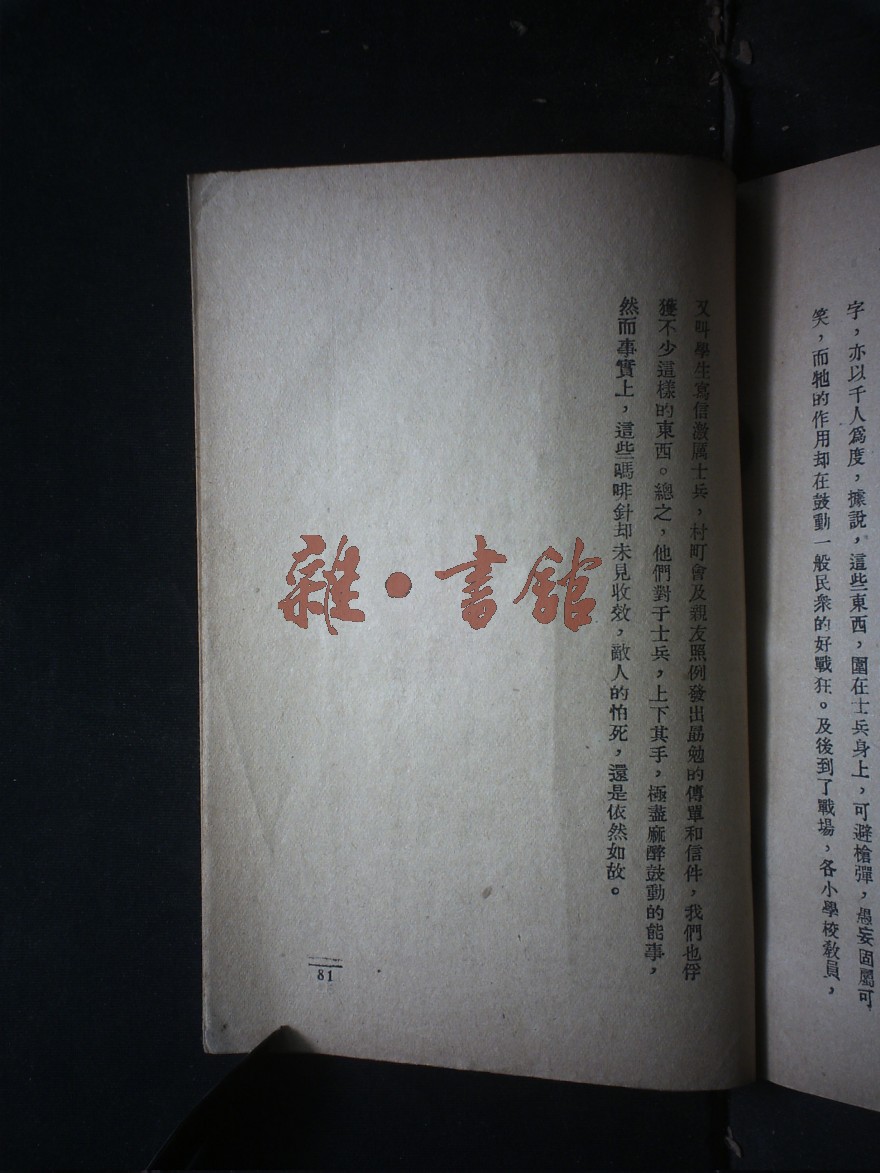 字，亦以千人爲度，據說，這些東西，圍在士兵身上，可避槍彈，愚妄固屬可
笑，而牠的作用却在鼓動一般民衆的好戰狂。及後到了戰場，各小學校敎員，
又叫學生寫信激厲士兵，村町會及親友照例發出勗勉的傳單和信件，我們也俘
獲不少這樣的東西。總之，他們對于士兵，上下其手，極盡麻醉鼓動的能事，
然而事實上，這些嗎啡針却未見收效，敵人的怕死，還是依然如故。
雜·書館
81